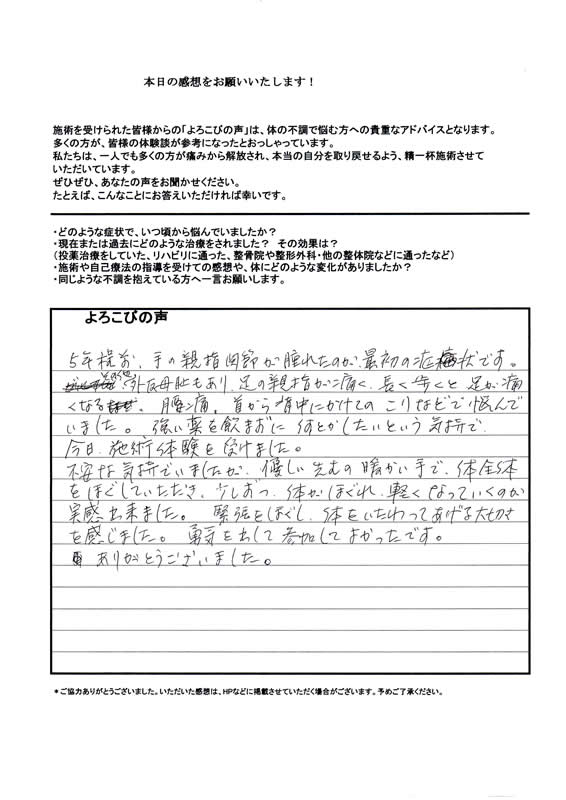 本日の感想をお願いいたします！
施術を受けられた皆様からの「よろこびの声」は、体の不調で悩む方への貴重なアドバイスとなります。
多くの方が、皆様の体験談が参考になったとおっしゃっています。
私たちは、一人でも多くの方が痛みから解放され、本当の自分を取り戻せるよう、精一杯施術させて
いただいています。
ぜひぜひ、あなたの声をお聞かせください。
たとえば、こんなことにお答えいただければ幸いです。
・どのような症状で、いつ頃から悩んでいましたか？
・現在または過去にどのような治療をされました？ その効果は？
（投薬治療をしていた、リハビリに通った、整骨院や整形外科・他の整体院などに通ったなど）
・施術や自己療法の指導を受けての感想や、体にどのような変化がありましたか？
・同じような不調を抱えている方へ一言お願いします。
よろこびの声
5年程前、手の親指関節が腫れたのが、最初の症状です。
その他、外反母趾もあり、足の親指が痛く、長く歩くと足が痛
くなる。腰痛、首から背中にかけてのこりなどで悩んで
いました。強い薬を飲まずに何とかしたいという気持で、
今日、施術体験を受けました。
不安な気持でいましたが、優しい先生の暖かい手で、体全体
をほぐしていただき、少しずつ、体がほぐれ、軽くなっていくのが
実感出来ました。緊張をほぐし、体をいたわってあげる大切さ
を感じました。勇気を出して参加してよかったです。
ありがとうございました。
＊ご協力ありがとうございました。いただいた感想は、HPなどに掲載させていただく場合がございます。予めご了承ください。